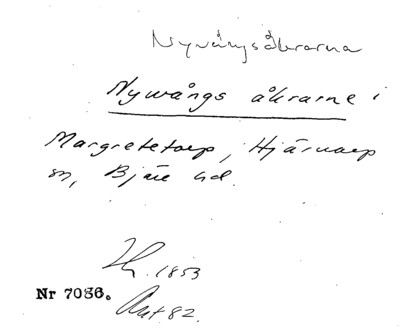 Nyvångsåkrarna
Nywångs åkrarne i
Margretetorp, Hjärnarp
sn, Bjäre hd.
1853
Nr 7086. Ant 82.